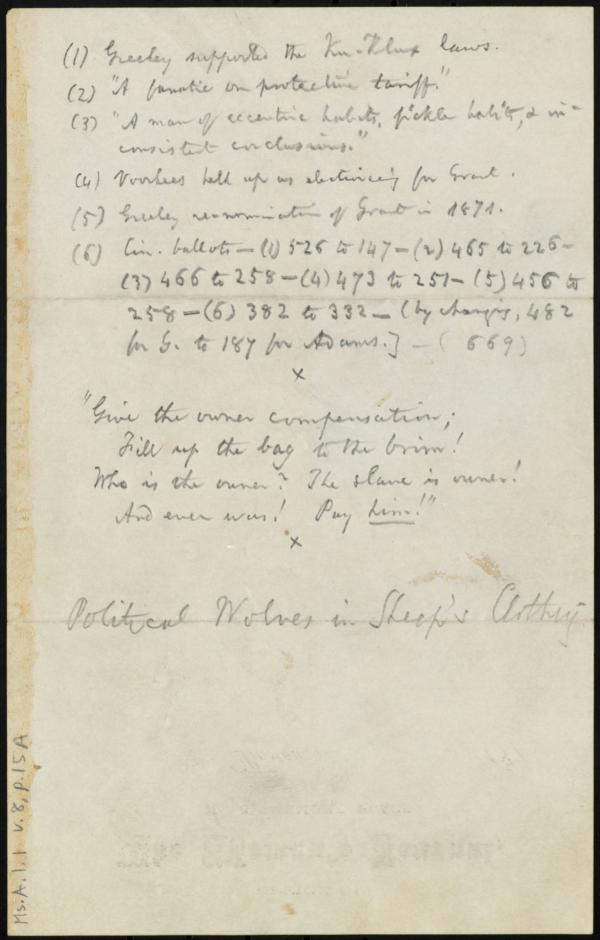 (1) Greeley supported the Ku-Klux laws.
(2) "A fanatic on protective tariff."
(3) "A man of eccentric habits, fickle habits, & in-
consistent conclusions."
(4) Voorhees held up as electioneering for Grant.
(5) Greeley renomination of Grant in 1871.
(6) Cin. ballots — (1) 526 to 147 — (2) 465 to 226 —
(3) 466 to 258 — (4) 473 to 251 — (5) 456 to
258 — (6) 382 to 332 — (by changes, 482
for G. to 187 for Adams.] — (669)
x
"Give the owner compensation;
Fill up the bag to the brim!
Who is the owner? The slave is owner!
And ever was! Pay him!"
x
Political Wolves in Sheep's Clothing
Ms.A.1.1 v.8, p.15A